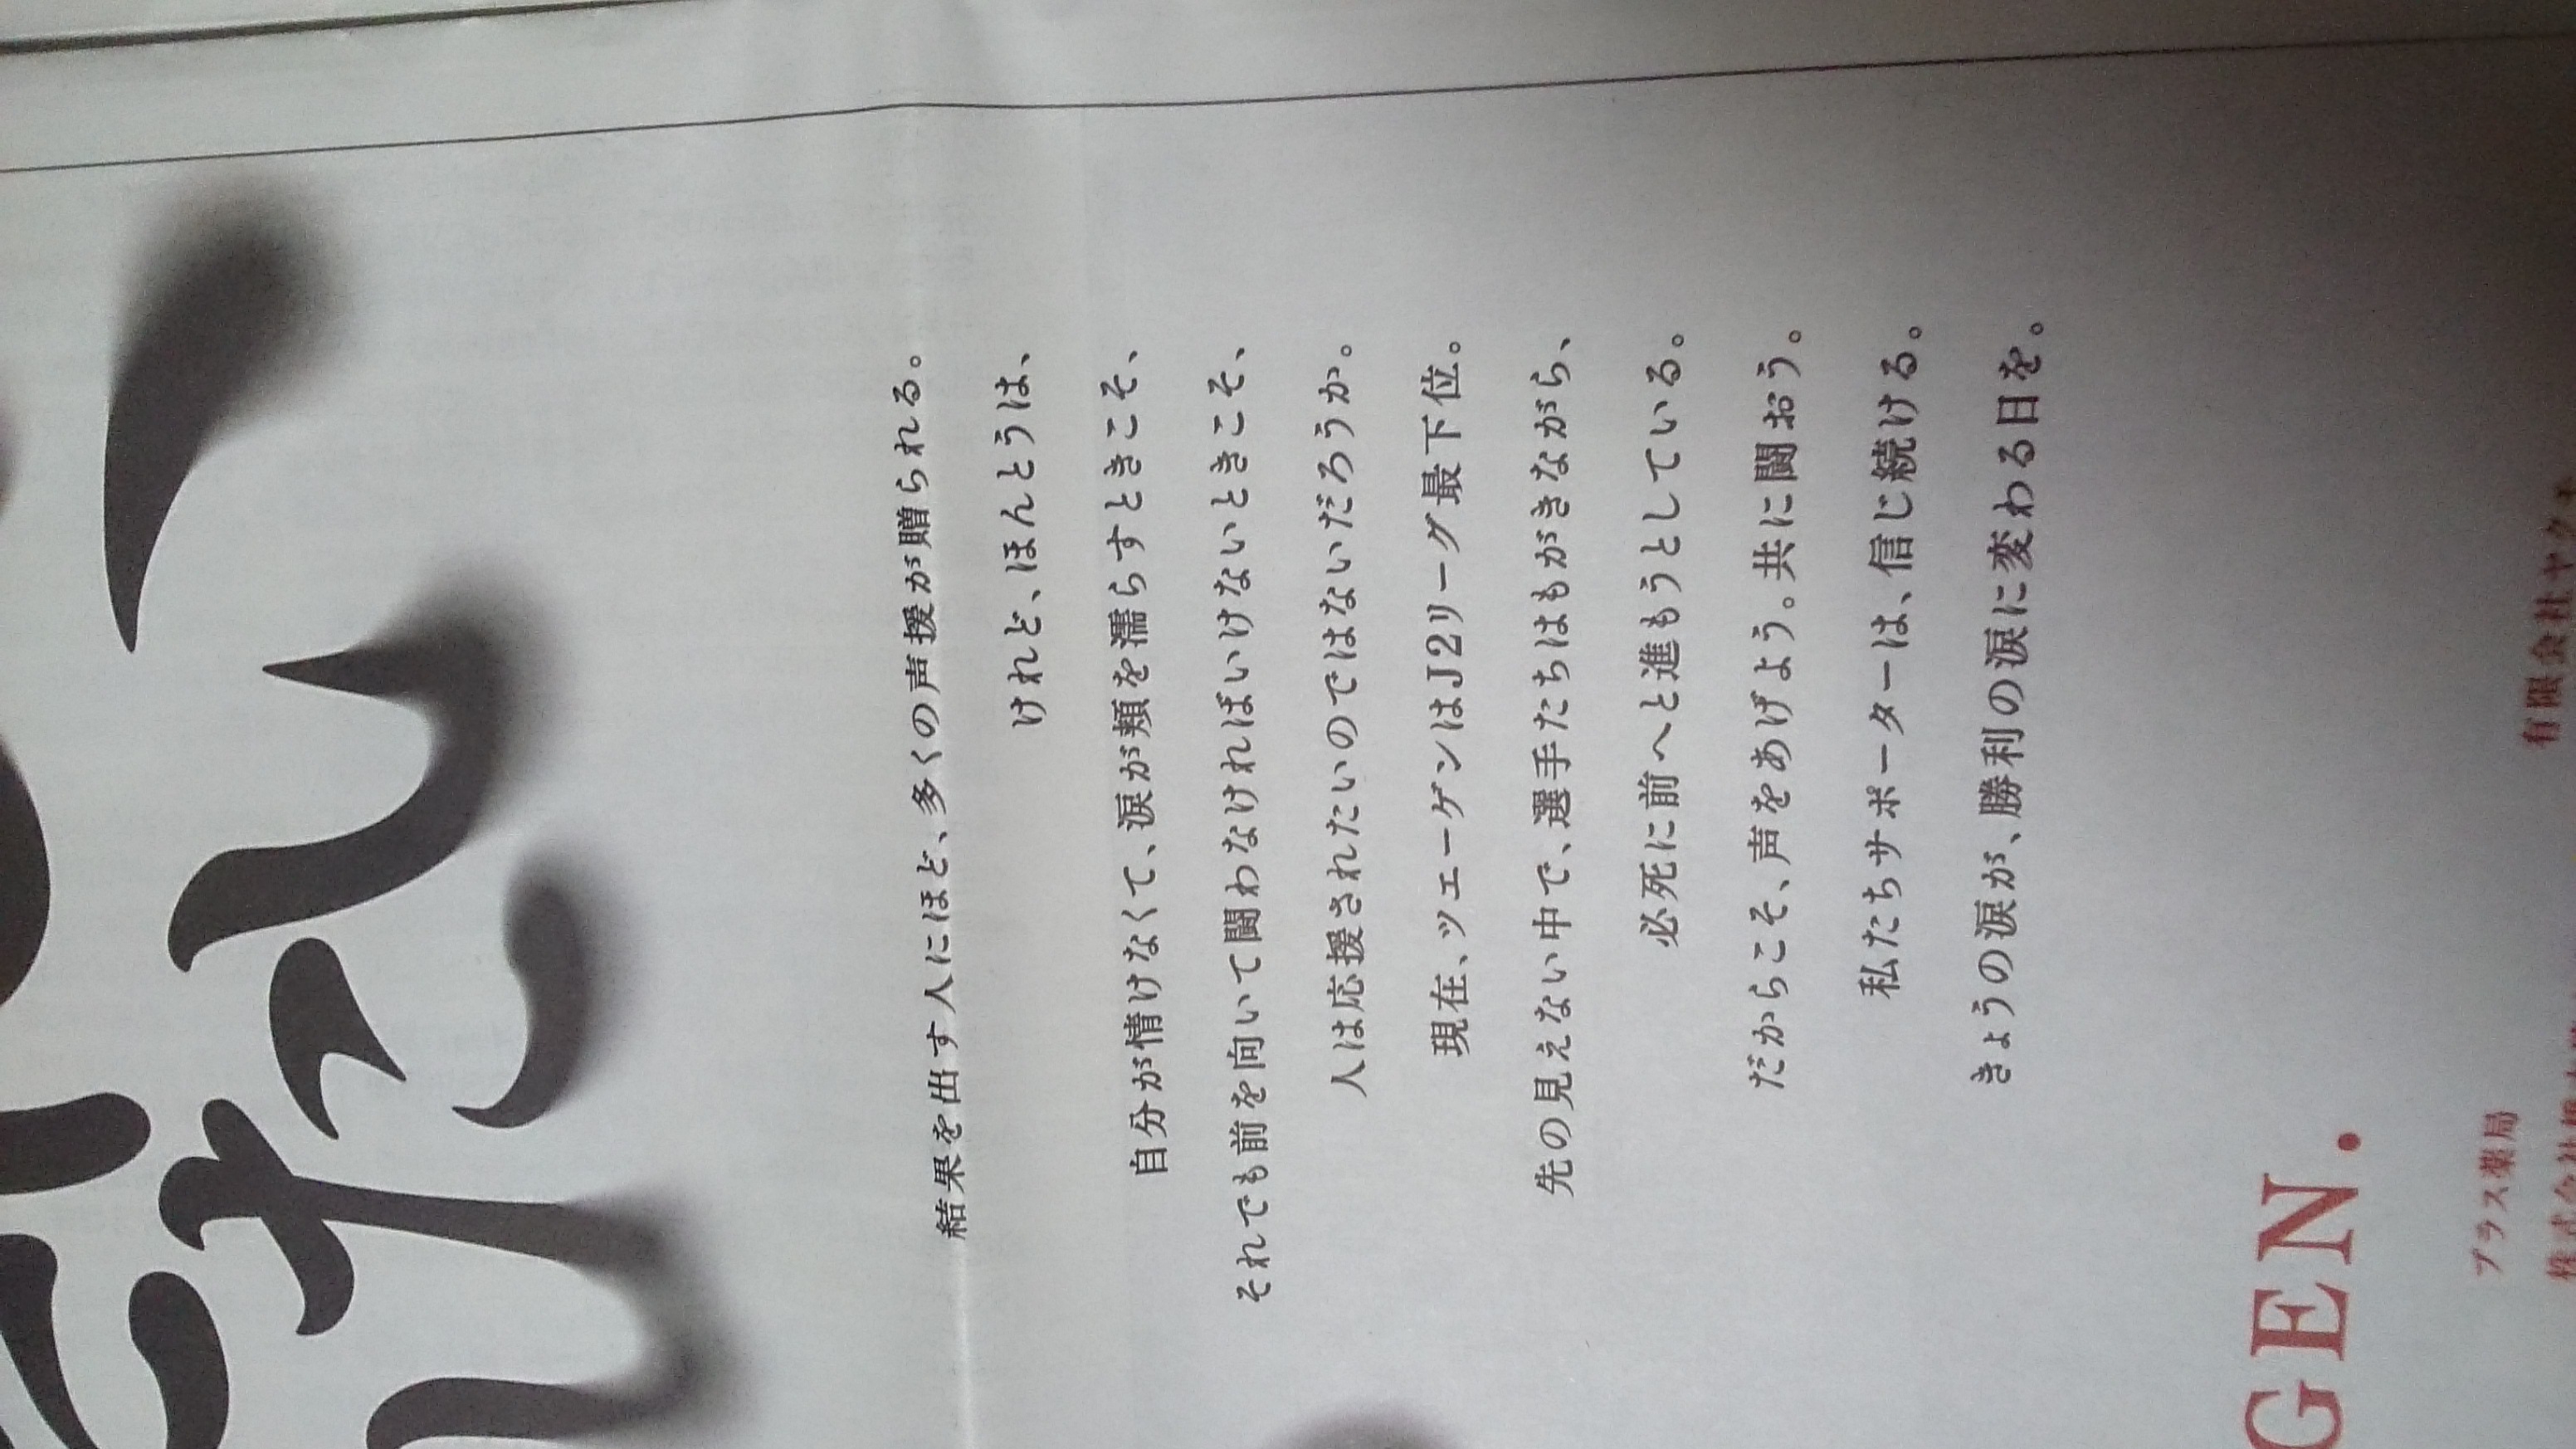 結果を出す人にほど、多くの声援が贈られる。
けれど、ほんとうは、
自分が情けなくて、涙が頬を濡らすときこそ、
それでも前を向いて闘わなければいけないときこそ、
人は応援されたいのではないだろうか。
現在、ツエーゲンはJ2リーグ最下位。
先の見えない中で、選手たちはもがきながら、
必死に前へと進もうとしている。
だからこそ、声をあげよう。共に闘おう。
私たちサポーターは、信じ続ける。
きょうの涙が、勝利の涙に変わる日を。
GEN.
プラス薬局
有限会社ヤ
株式会社